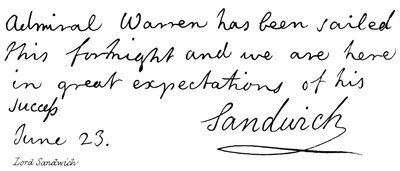 Admiral Warren has been sailed
this fortnight and we are here
in great expectations of his
success
June 23. Sandwich
Lord Sandwich